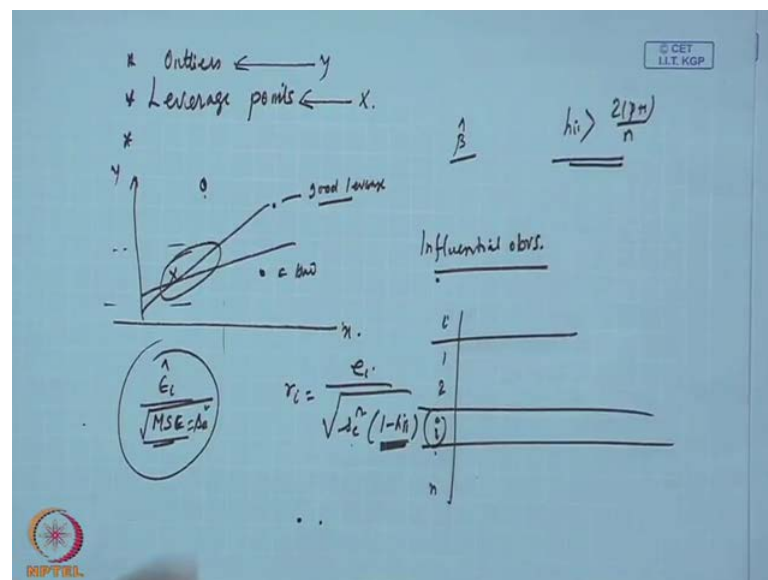 © CET
I.I.T. KGP
* Outliers ← y
* Leverage points ← X.
*
β̂
hii > 2(p+1)/n
y
good leverage
← Bad
x.
Influential obvs.
i
1
2
i
n
ε̂i / √MSE = se²
ri = ei / √se²(1-hii)
NPTEL